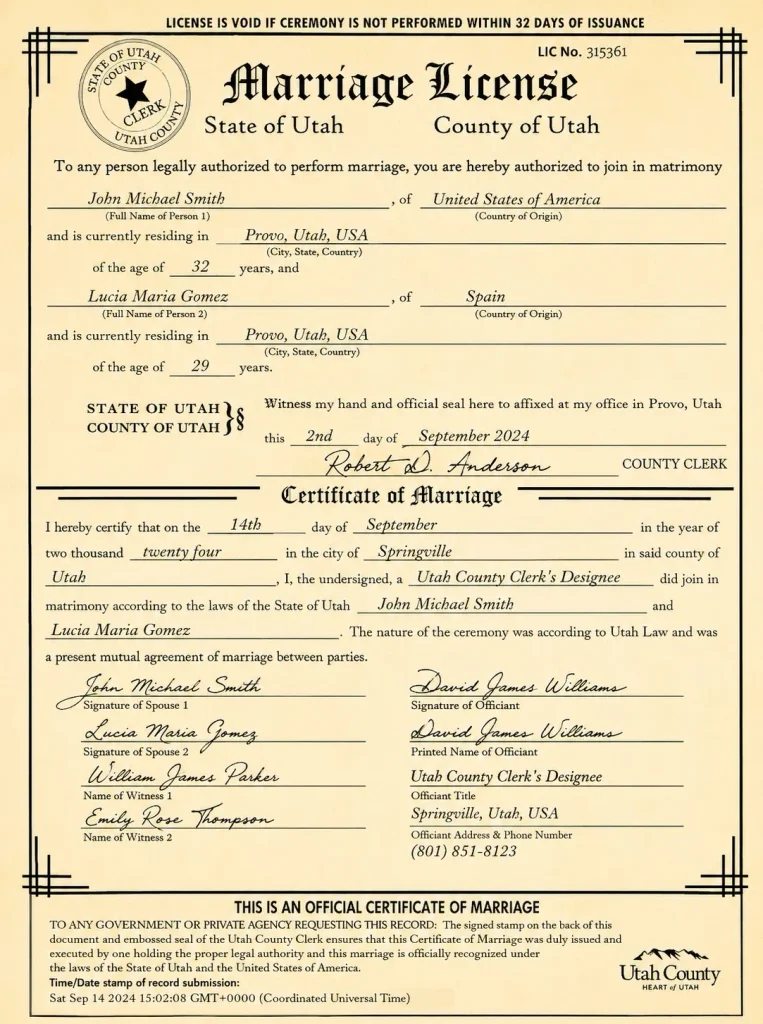 LICENSE IS VOID IF CEREMONY IS NOT PERFORMED WITHIN 32 DAYS OF ISSUANCE
LIC No. 315361
STATE OF UTAH
COUNTY
CLERK
UTAH COUNTY
Marriage License
State of Utah County of Utah
To any person legally authorized to perform marriage, you are hereby authorized to join in matrimony
John Michael Smith , of United States of America
(Full Name of Person 1) (Country of Origin)
and is currently residing in Provo, Utah, USA
(City, State, Country)
of the age of 32 years, and
Lucia Maria Gomez , of Spain
(Full Name of Person 2) (Country of Origin)
and is currently residing in Provo, Utah, USA
(City, State, Country)
of the age of 29 years.
STATE OF UTAH
COUNTY OF UTAH } §
Witness my hand and official seal here to affixed at my office in Provo, Utah
this 2nd day of September 2024
Robert D. Anderson COUNTY CLERK
Certificate of Marriage
I hereby certify that on the 14th day of September in the year of
two thousand twenty four in the city of Springville in said county of
Utah , I, the undersigned, a Utah County Clerk's Designee did join in
matrimony according to the laws of the State of Utah John Michael Smith and
Lucia Maria Gomez . The nature of the ceremony was according to Utah Law and was
a present mutual agreement of marriage between parties.
John Michael Smith
Signature of Spouse 1
Lucia Maria Gomez
Signature of Spouse 2
William James Parker
Name of Witness 1
Emily Rose Thompson
Name of Witness 2
David James Williams
Signature of Officiant
David James Williams
Printed Name of Officiant
Utah County Clerk's Designee
Officiant Title
Springville, Utah, USA
Officiant Address & Phone Number
(801) 851-8123
THIS IS AN OFFICIAL CERTIFICATE OF MARRIAGE
TO ANY GOVERNMENT OR PRIVATE AGENCY REQUESTING THIS RECORD: The signed stamp on the back of this
document and embossed seal of the Utah County Clerk ensures that this Certificate of Marriage was duly issued and
executed by one holding the proper legal authority and this marriage is officially recognized under
the laws of the State of Utah and the United States of America.
Time/Date stamp of record submission:
Sat Sep 14 2024 15:02:08 GMT+0000 (Coordinated Universal Time)
Utah County
HEART of UTAH